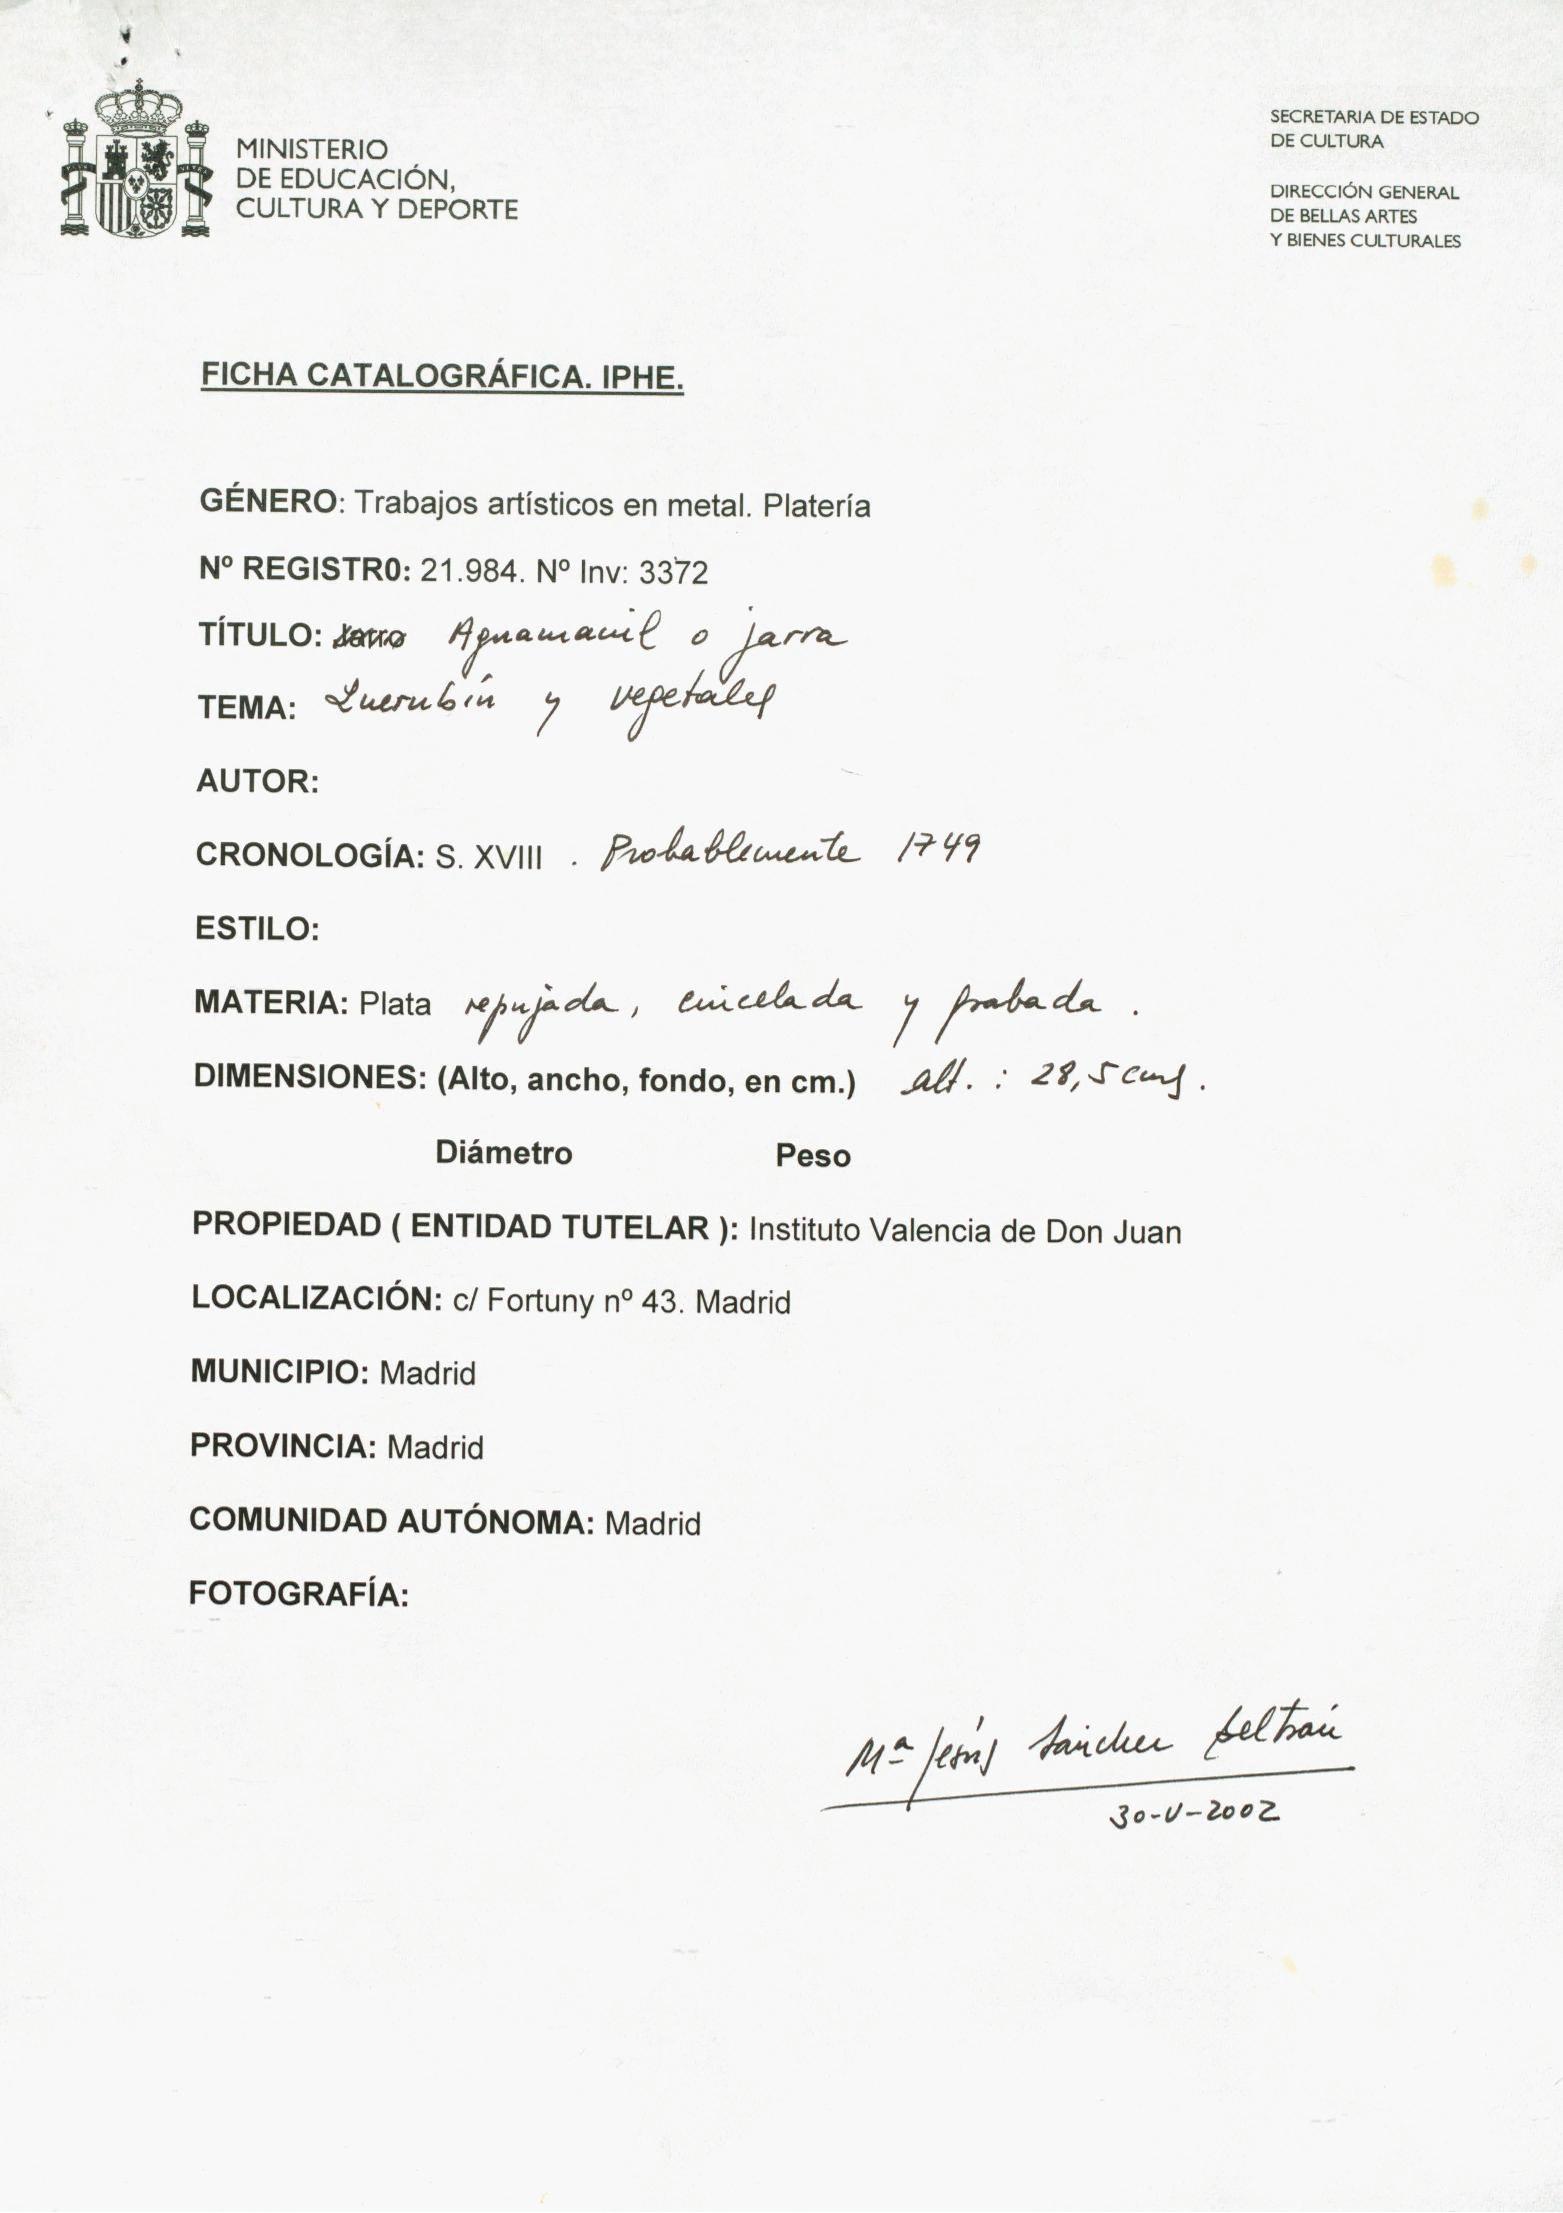 MINISTERIO
DE EDUCACIÓN,
CULTURA Y DEPORTE
SECRETARIA DE ESTADO
DE CULTURA
DIRECCIÓN GENERAL
DE BELLAS ARTES
Y BIENES CULTURALES
FICHA CATALOGRÁFICA. IPHE.
GÉNERO: Trabajos artísticos en metal. Platería
Nº REGISTR0: 21.984. Nº Inv: 3372
TÍTULO: Jarro Aguamanil o jarra
TEMA: Querubín y vegetales
AUTOR:
CRONOLOGÍA: S. XVIII . Probablemente 1749
ESTILO:
MATERIA: Plata repujada, cincelada y grabada.
DIMENSIONES: (Alto, ancho, fondo, en cm.) alt. : 28,5 cms.
Diámetro Peso
PROPIEDAD ( ENTIDAD TUTELAR ): Instituto Valencia de Don Juan
LOCALIZACIÓN: c/ Fortuny nº 43. Madrid
MUNICIPIO: Madrid
PROVINCIA: Madrid
COMUNIDAD AUTÓNOMA: Madrid
FOTOGRAFÍA:
Mª Jesús Sánchez Beltrán
30-V-2002